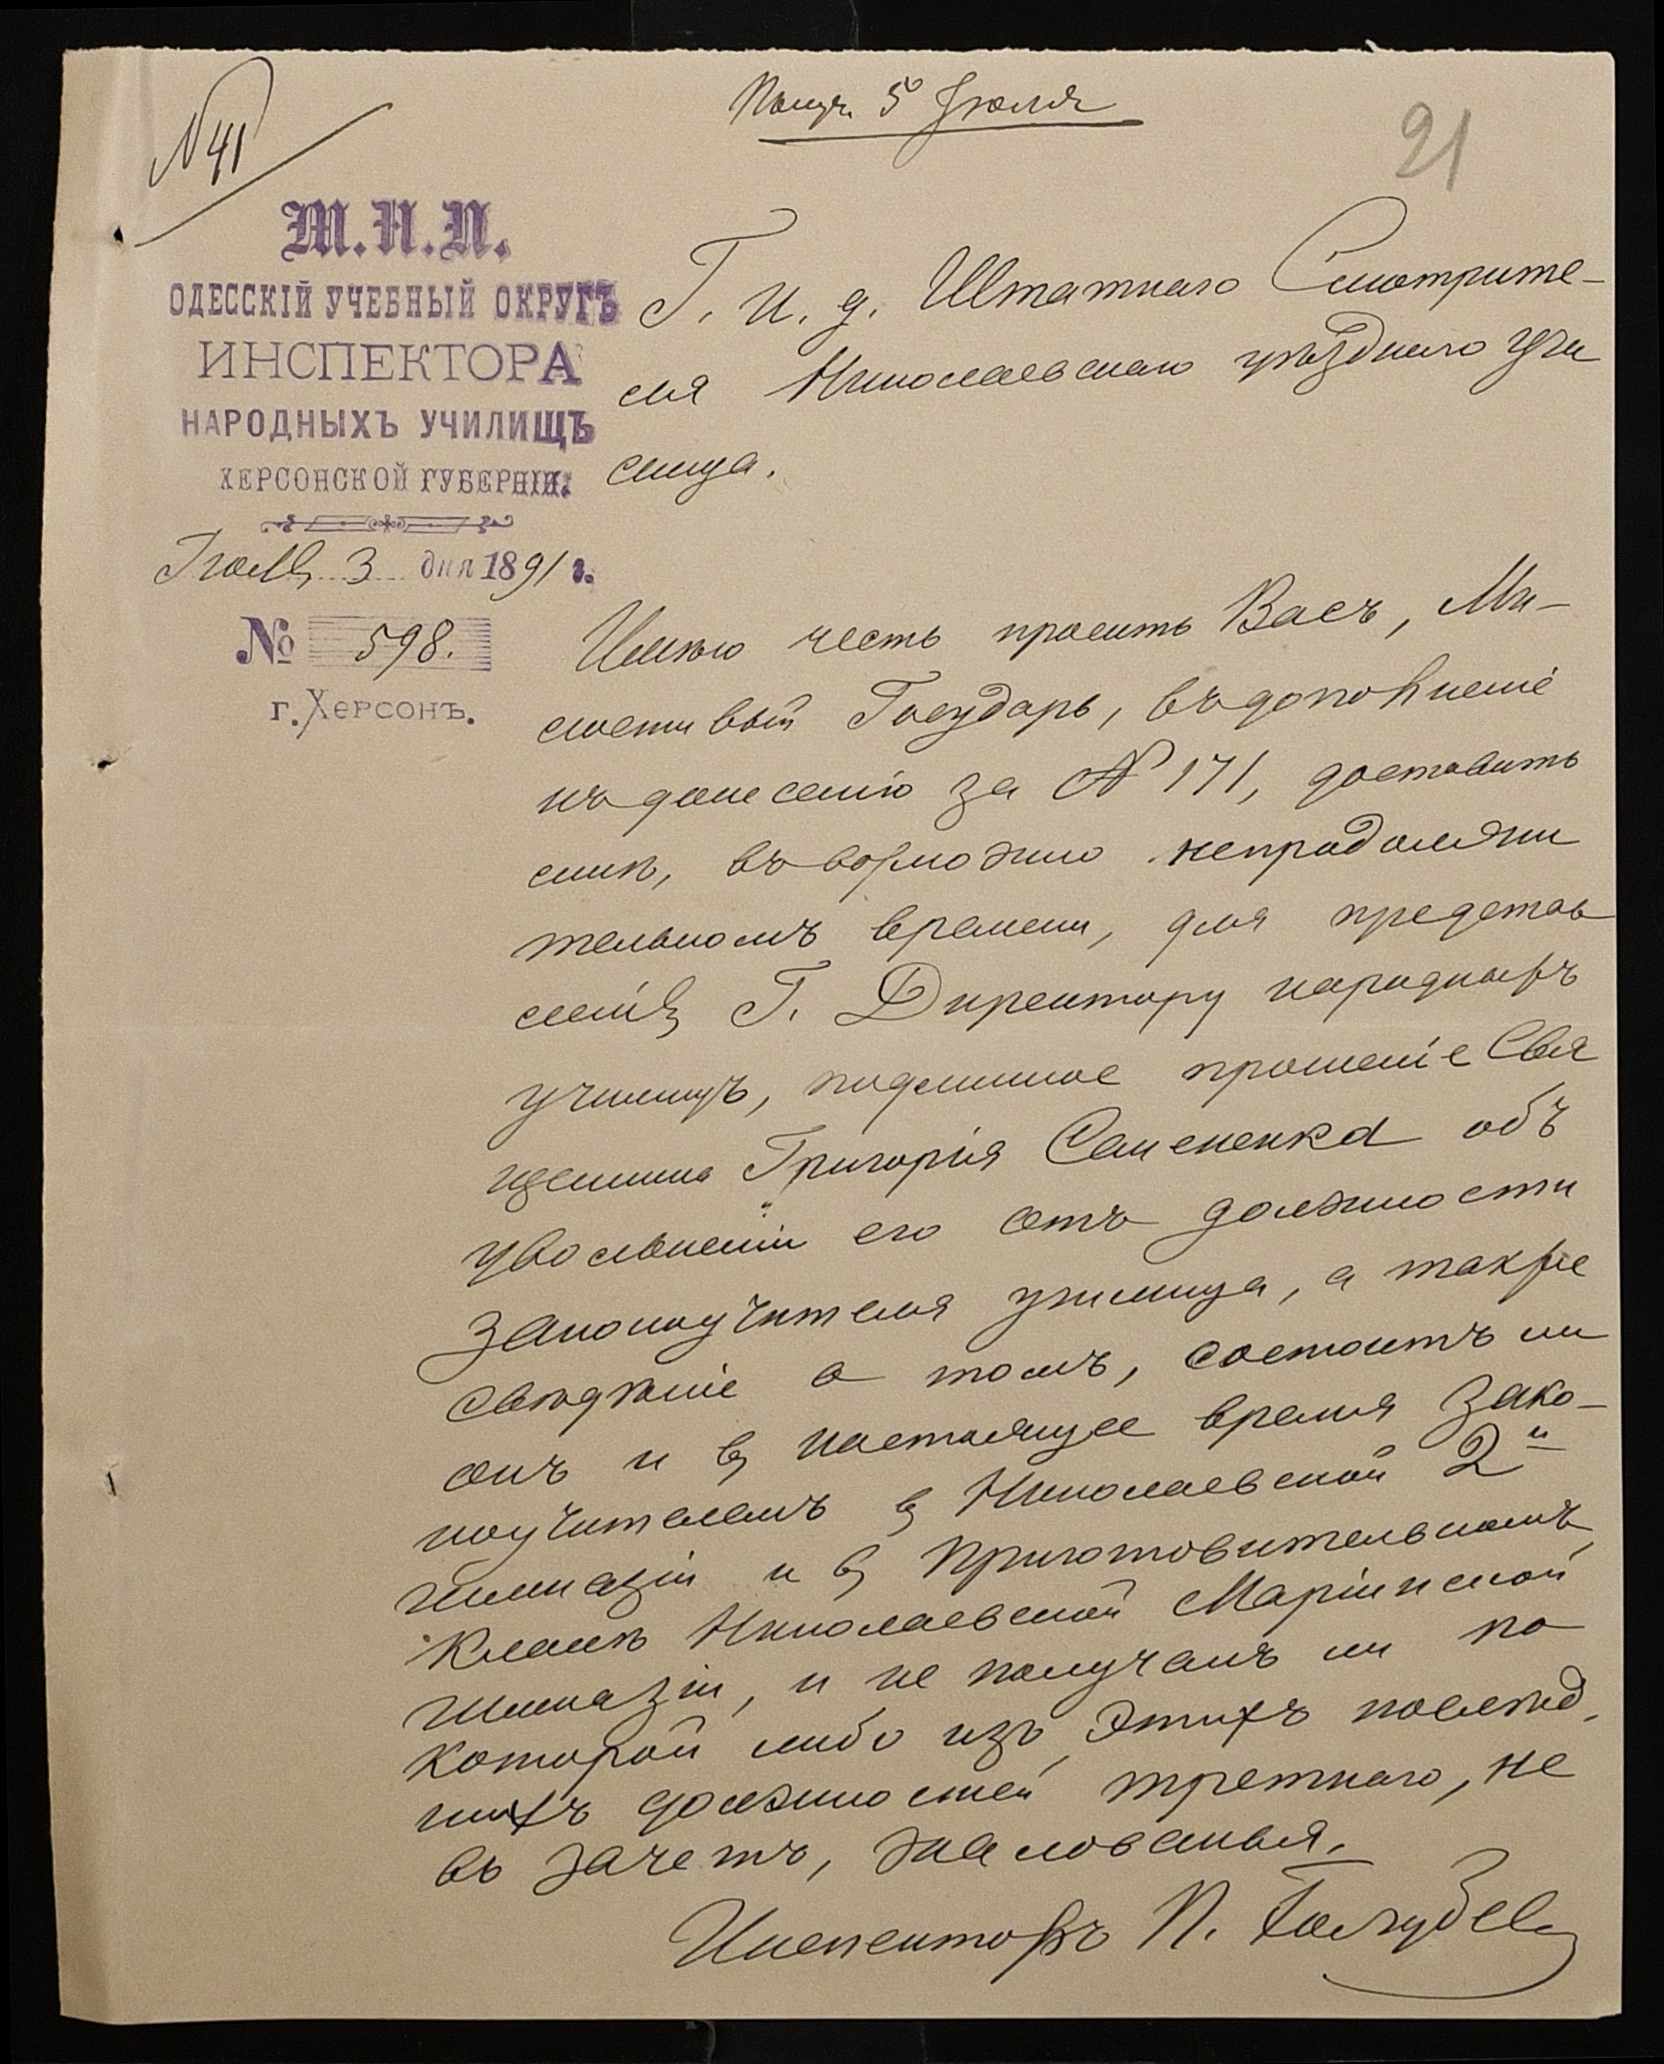 Получ. 5 Іюля
№ 41
21
М.Н.П.
ОДЕССКІЙ УЧЕБНЫЙ ОКРУГЪ
ИНСПЕКТОРА
НАРОДНЫХЪ УЧИЛИЩЪ
ХЕРСОНСКОЙ ГУБЕРНІИ.
Іюля 3 дня 1891 г.
№ 598.
г. Херсонъ.
Г. И. д. Штатнаго Смотрите-
ля Николаевскаго уѣзднаго учи
лища.
Имѣю честь просить Васъ, Ми-
лостивый Государь, въ дополненіе
къ донесенію за № 171, доставить
мнѣ, въ возможно непродолжи
тельномъ времени, для представ
ленія Г. Директору народныхъ
училищъ, подлинное прошеніе Свя
щенника Григорія Семененка объ
увольненіи его отъ должности
законоучителя училища, а также
свѣдѣніе о томъ, состоитъ ли
онъ и въ настоящее время зако-
ноучителемъ въ Николаевской 2й
гимназіи и въ приготовительномъ
классѣ Николаевской Маріинской
гимназіи, и не получалъ ли по
которой либо изъ этихъ послѣд-
нихъ должностей третнаго, не
въ зачетъ, жалованья.
Инспекторъ П. Голубев